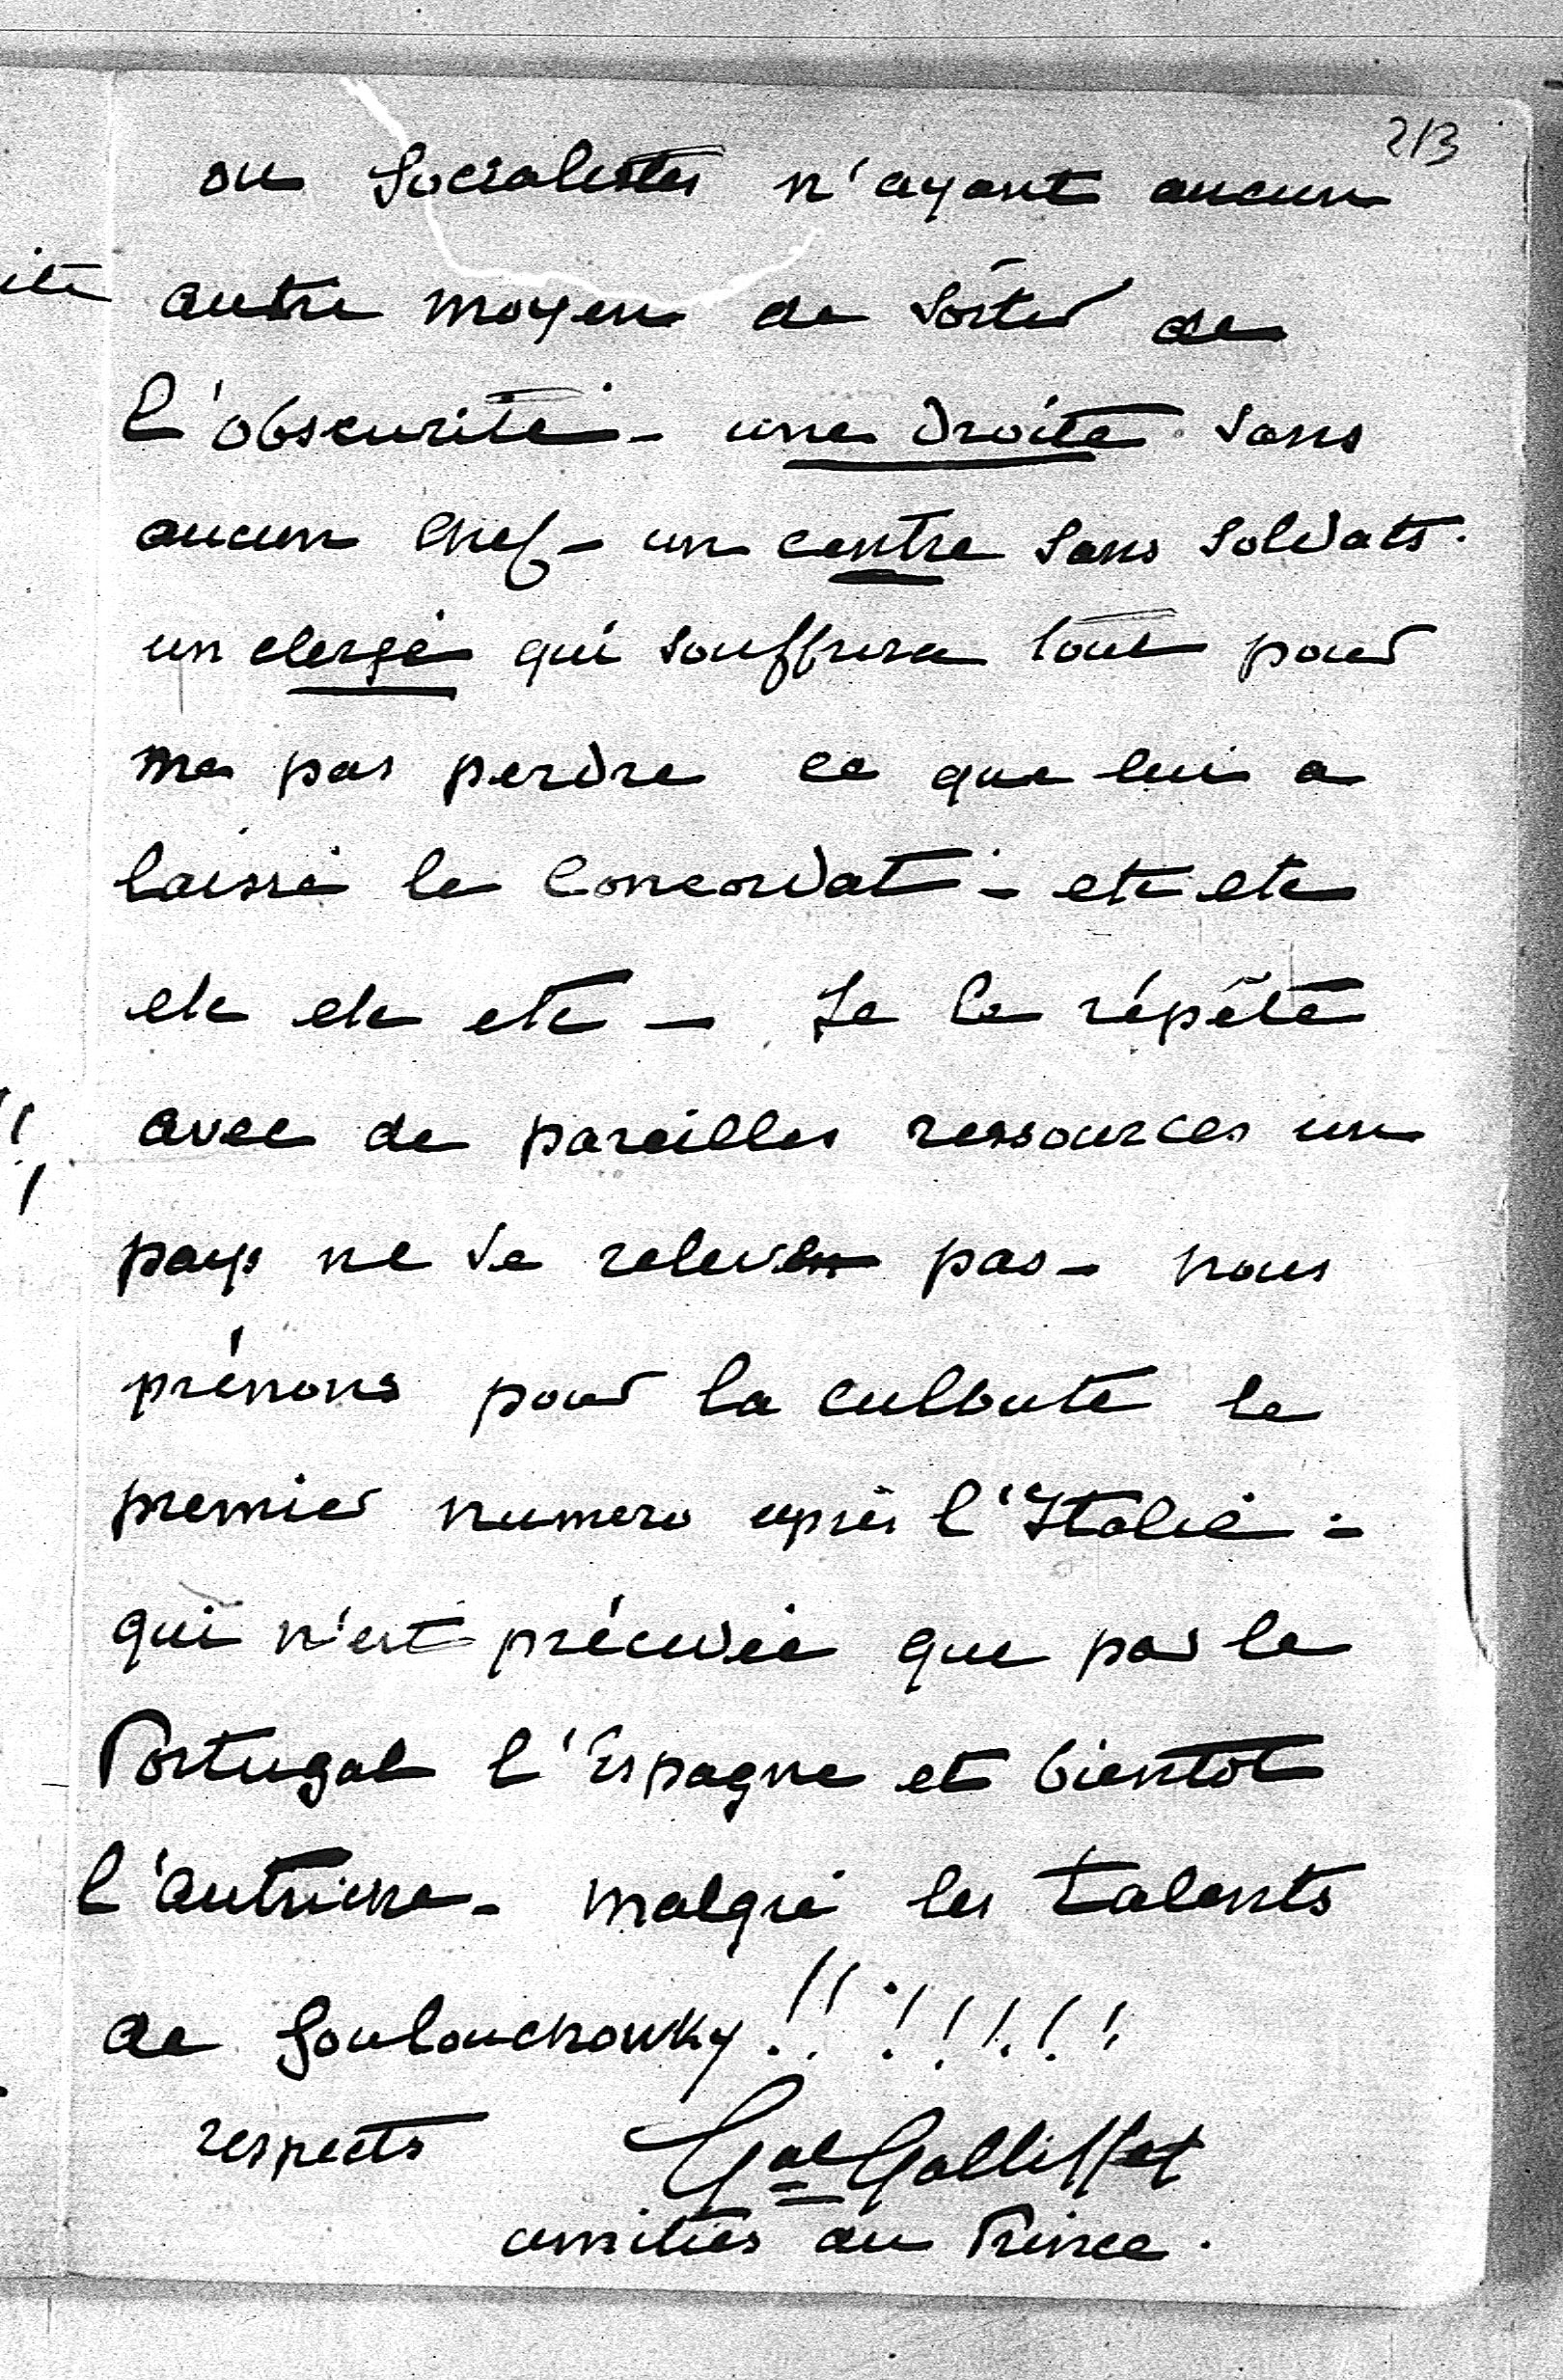 213
ou socialistes n'ayant aucun
autre moyen de sortir de
l'obscurité - une droite sans
aucun chef - un centre sans soldats.
un clergé qui souffrira tout pour
ne pas perdre ce que lui a
laissé le Concordat - etc etc
etc etc etc - Je le répète
avec de pareilles ressources un
pays ne se relève pas - nous
prénons pour la culbute le
premier numero après l'Italie -
qui n'est précédée que par le
Portugal l'Espagne et bientot
l'autriche - malgré les talents
de Goulouchowky !! ! ! ! ! !
respects Gal Galliffet
amitiés au Prince.